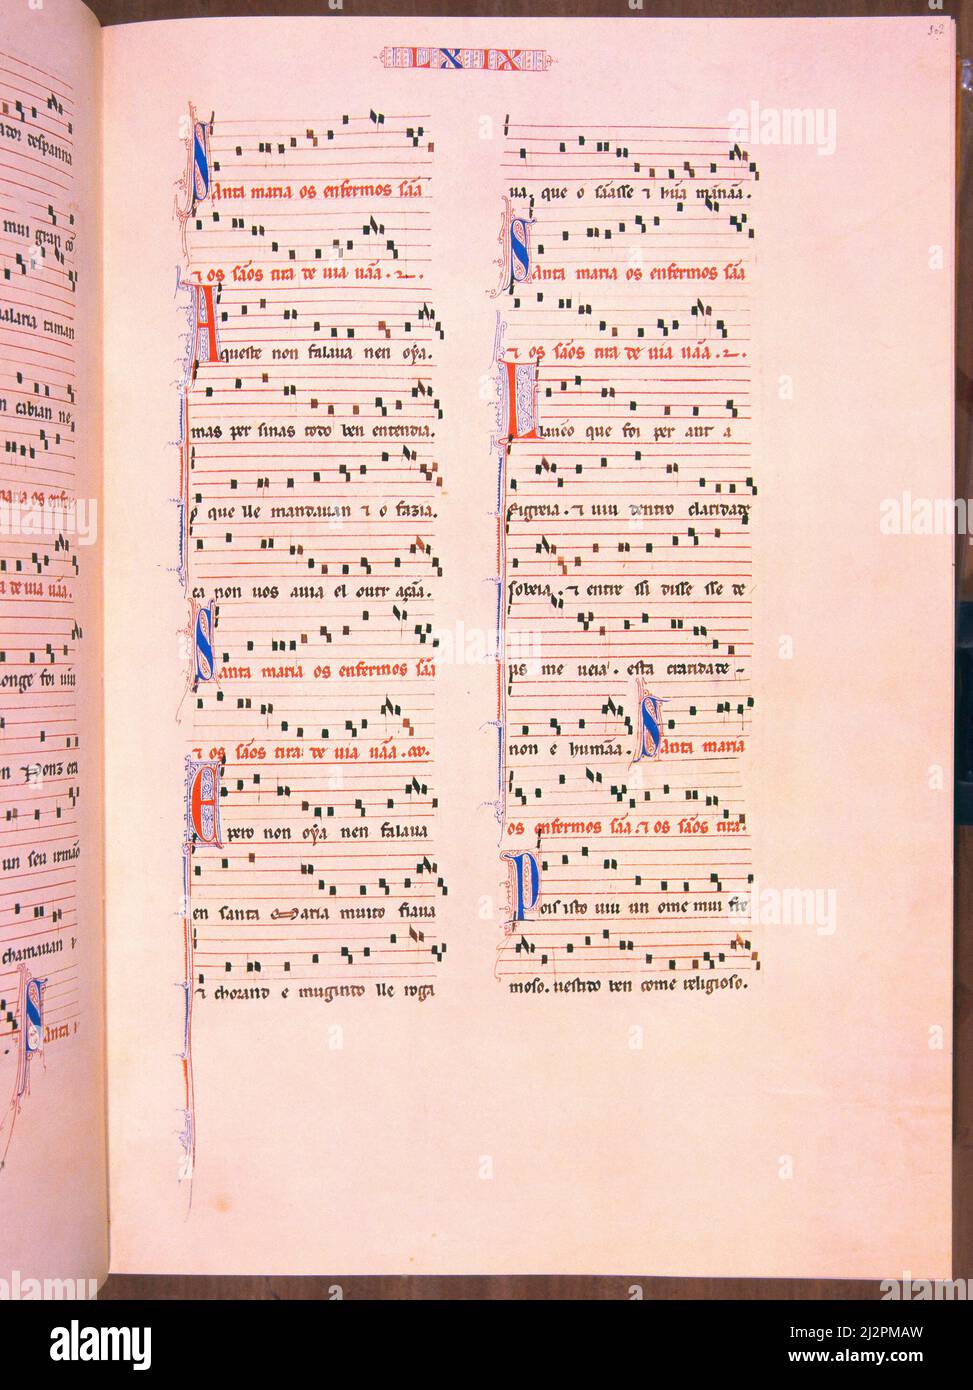 LXIX
302
Santa maria os enfermos sãa
⁊ os sãos tira de uia uãa.
Aqueste non falaua nen oya.
mas per sinas todo ben entendia.
o que lle mandauan ⁊ o fazia.
ca non uos auia el outr açãa.
Santa maria os enfermos sãa
⁊ os sãos tira de uia uãa.
Epero non oya nen falaua
en santa Maria muito fiaua
⁊ chorand e mugindo lle roga
ua. que o sãasse ⁊ hũa mãnãa.
Santa maria os enfermos sãa
⁊ os sãos tira de uia uãa.
Leuãno que foi per ant a
Eigreia. ⁊ uiu dentro claridade
sobeia. ⁊ entre ssi disse sse de
us me ueia. esta craridade
non e humãa. Santa maria
os enfermos sãa. ⁊ os sãos tira.
Pois isto uiu un ome mui fre
moso. uestido ben come religioso.
ador despanna
mui gran
alaria
n cabian ne
maria os enfer
a de uia uãa.
longe foi uiu
un seu irmão
chamauan
Santa
alamy
Image ID: J2PMAW
www.alamy.com